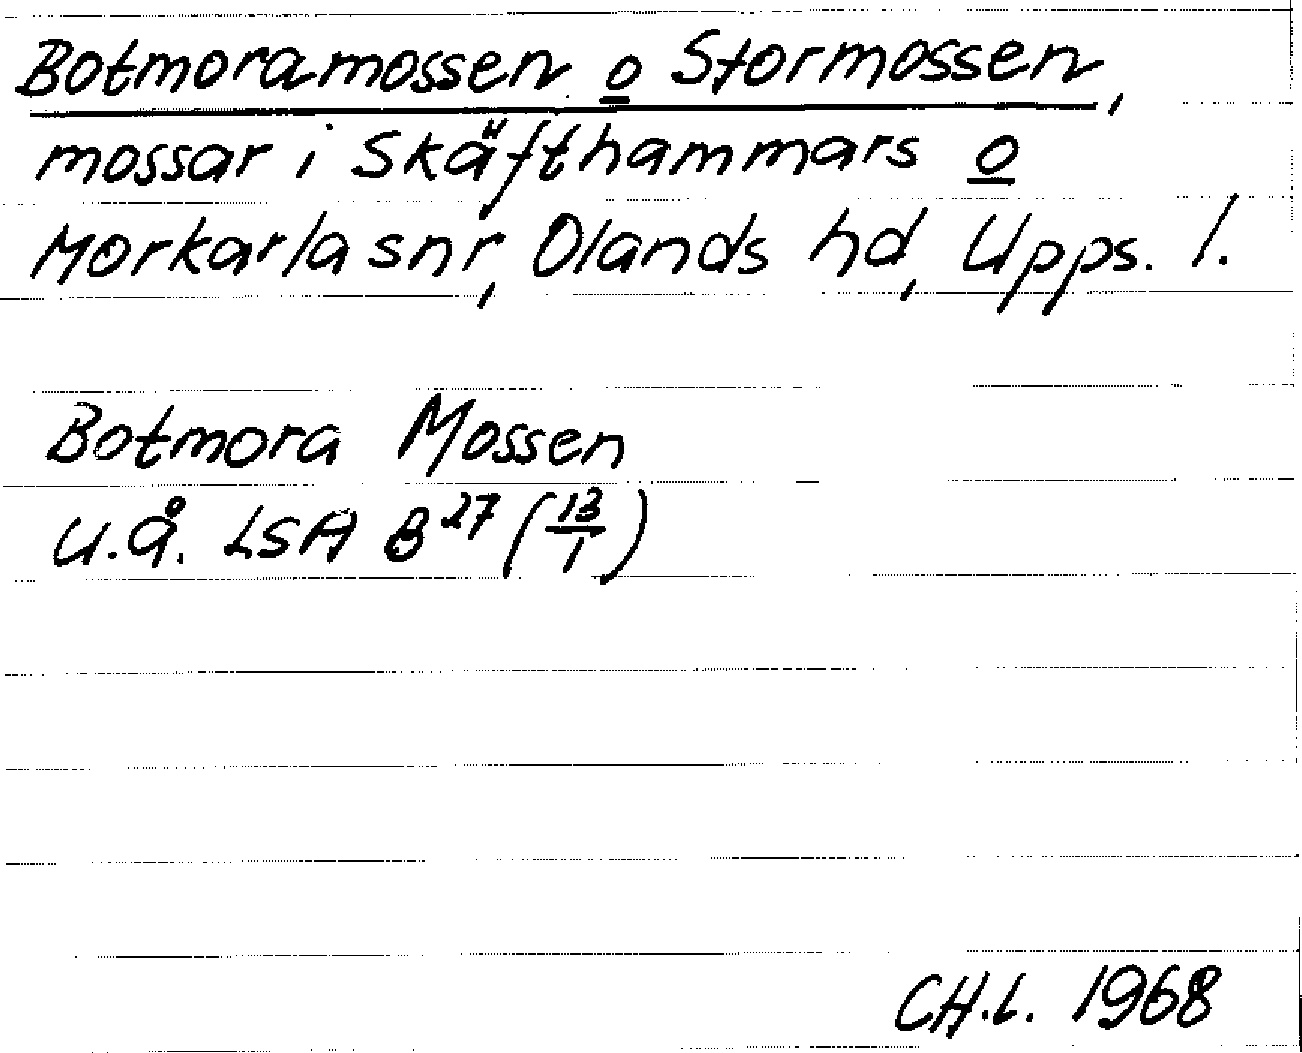 Botmoramossen o Stormossen,
mossar i Skäfthammars o
Morkarla snr, Olands hd, Upps. l.
Botmora Mossen
u.å. LSA B27 (13/1)
CH.L. 1968